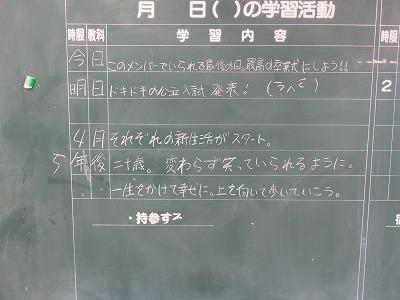 月 日( )の学習活動
時限 教科 学習内容
今日 このメンバーでいられる最後の日。最高の卒業式にしよう!!
明日 ドキドキの公立入試発表!
4月 それぞれの新生活がスタート。
5年後 二十歳。変わらず笑っていられるように。
一生をかけて幸せに。上を向いて歩いていこう。
・持参する
時限
2